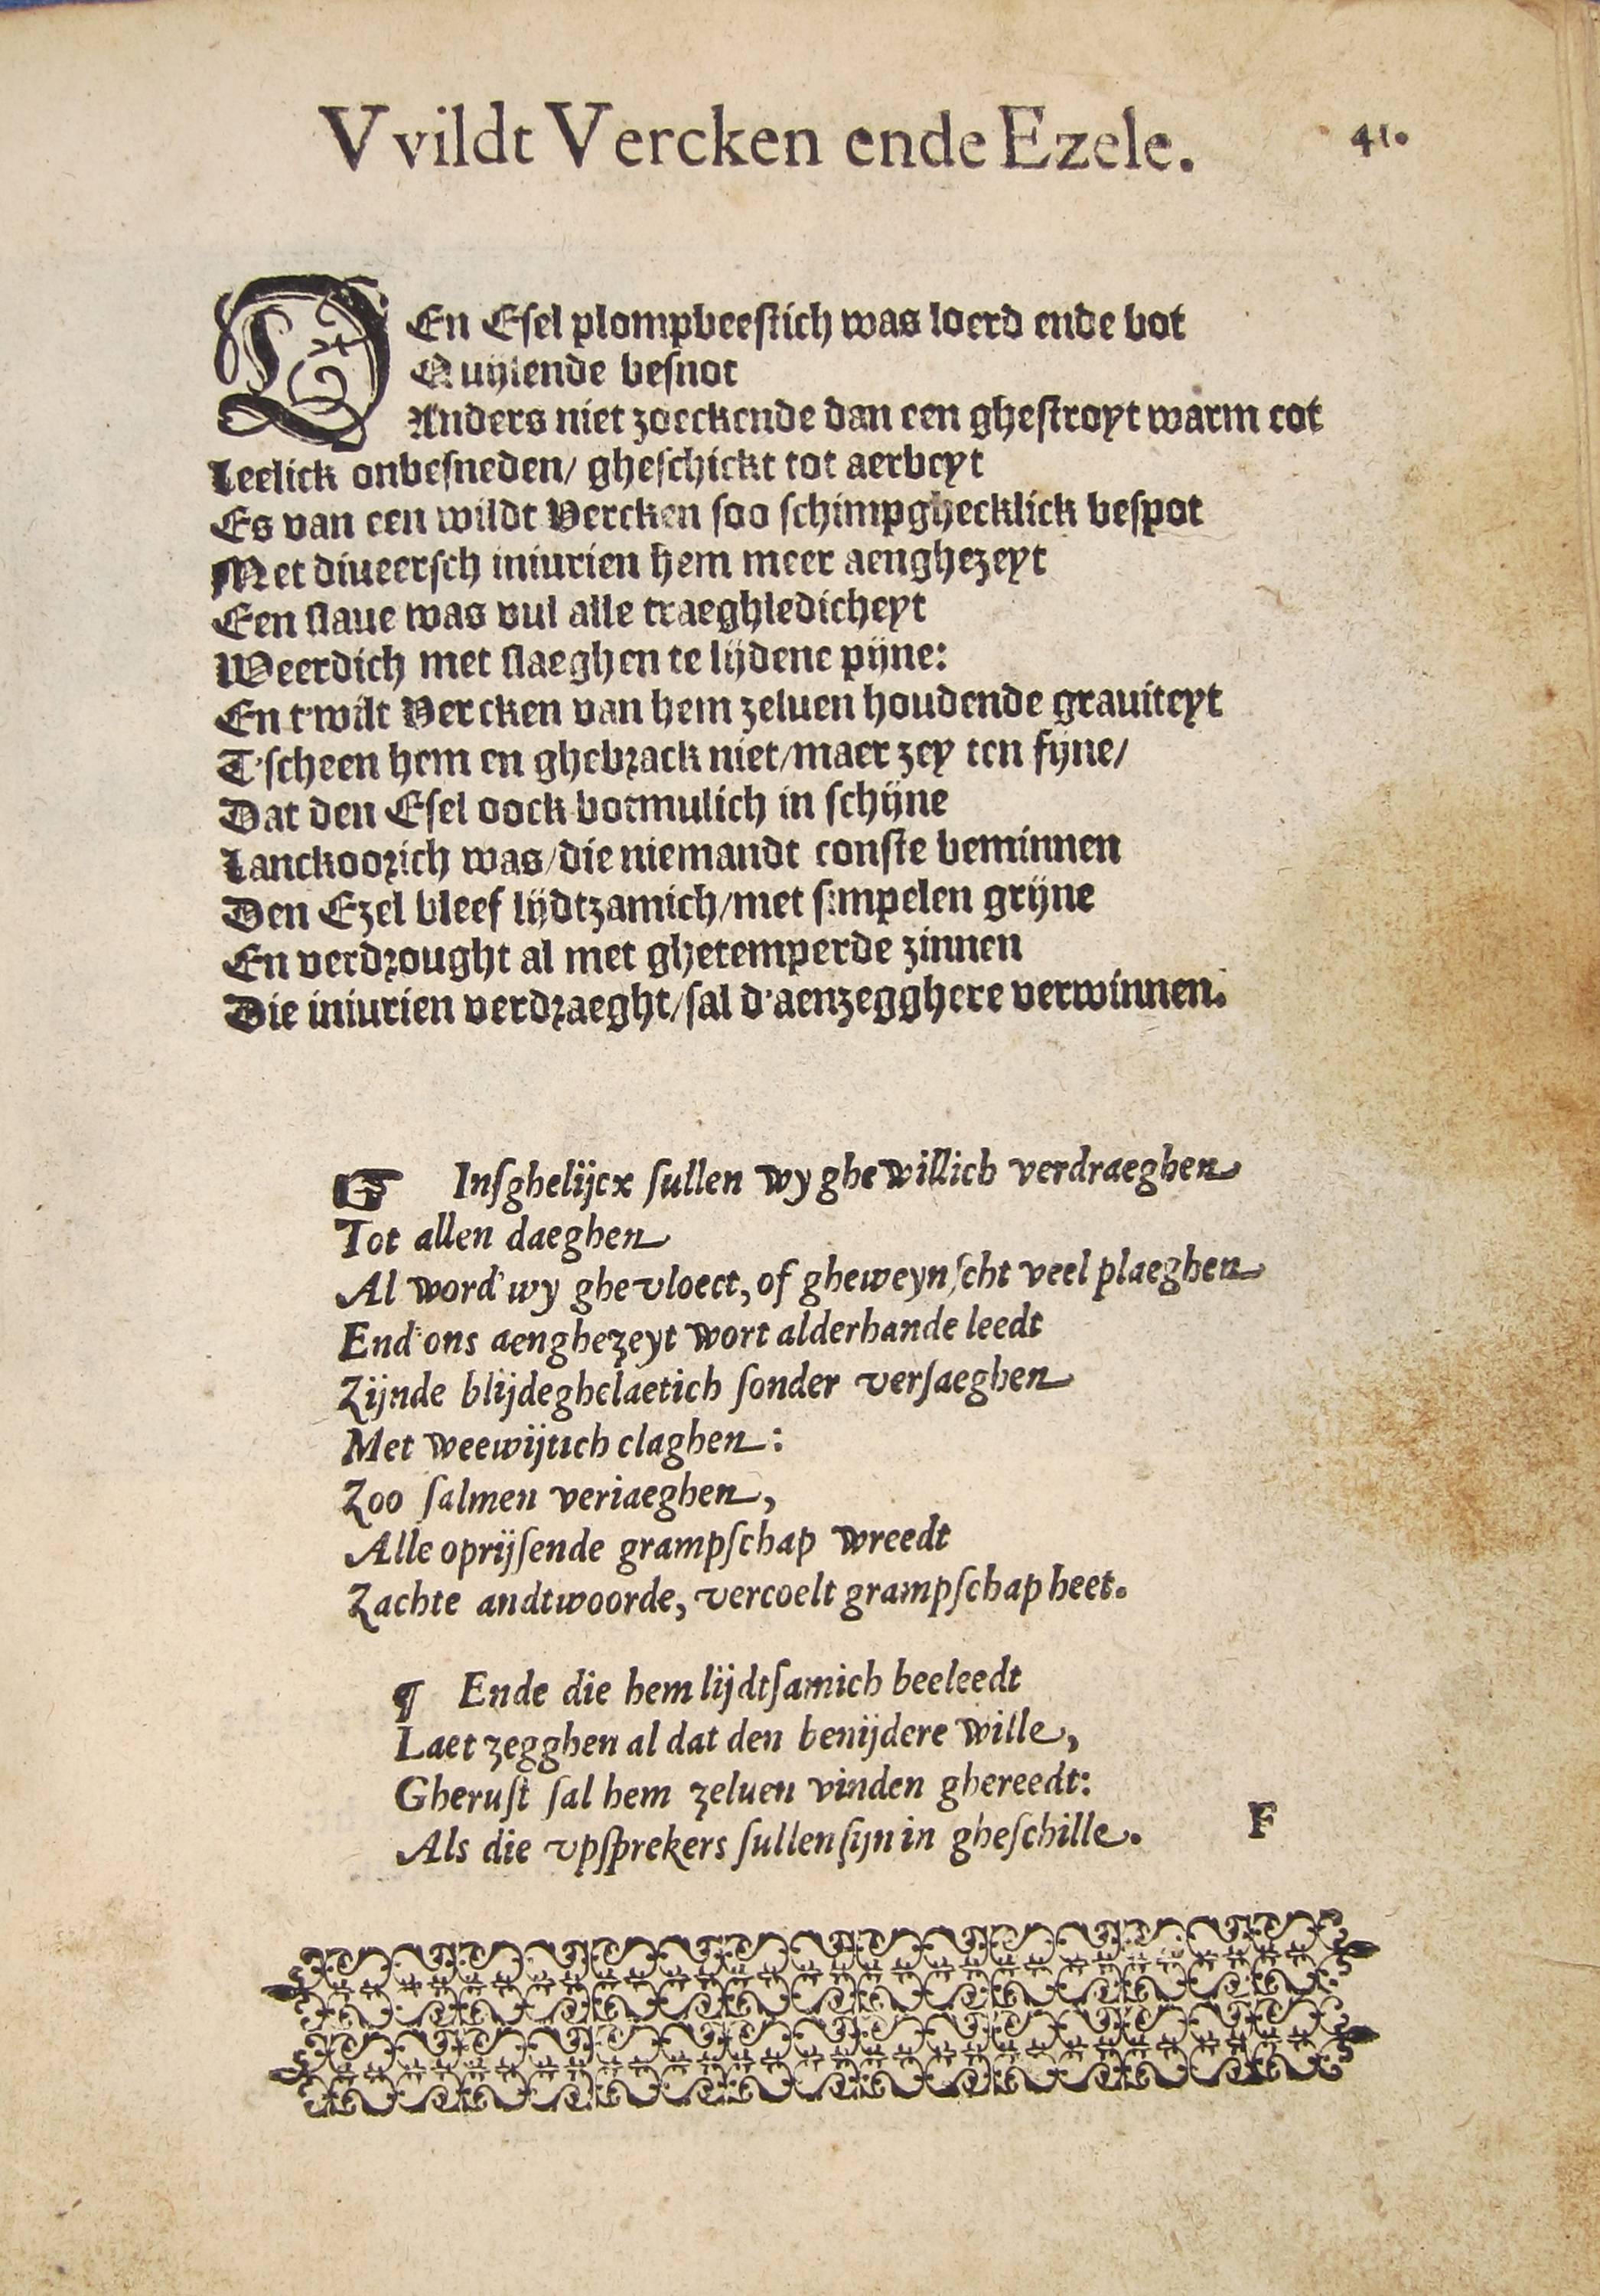 Vvildt Vercken ende Ezele. 41.
DEn Esel plompbeestich was loerd ende bot
Quijlende besnot
Anders niet zoeckende dan een ghestroyt warm cot
Leelick onbesneden/ gheschickt tot aerbeyt
Es van een wildt Vercken soo schimpghecklick bespot
Met diueersch iniurien hem meer aenghezeyt
Een slaue was vul alle traeghledicheyt
Weerdich met slaeghen te lijdene pijne:
En t'wilt Vercken van hem zeluen houdende grauiteyt
T'scheen hem en ghebrack niet/maer zey ten fijne/
Dat den Esel oock botmulich in schijne
Lanckoorich was/die niemandt conste beminnen
Den Ezel bleef lijdtzamich/met simpelen grijne
En verdrought al met ghetemperde zinnen
Die iniurien verdraeght/sal d'aenzegghere verwinnen.
☞ Insghelijcx sullen wy ghewillich verdraeghen
Tot allen daeghen
Al word' wy ghevloect, of gheweynscht veel plaeghen
End' ons aenghezeyt wort alderhande leedt
Zijnde blijdeghelaetich sonder versaeghen
Met weewijtich claghen:
Zoo salmen veriaeghen,
Alle oprijsende grampschap wreedt
Zachte andtwoorde, vercoelt grampschap heet.
¶ Ende die hem lijdtsamich beeleedt
Laet zegghen al dat den benijdere wille,
Gherust sal hem zeluen vinden ghereedt:
Als die vpsprekers sullen sijn in gheschille. F